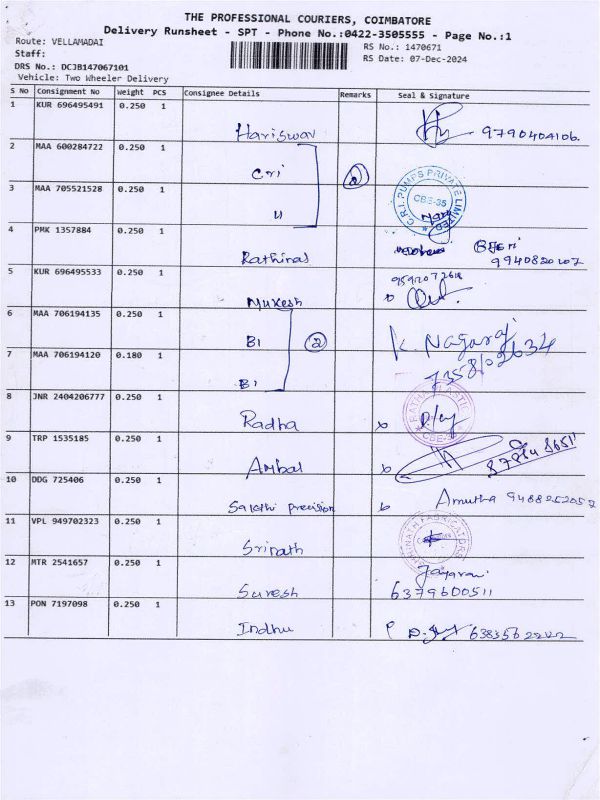 THE PROFESSIONAL COURIERS, COIMBATORE
Delivery Runsheet - SPT - Phone No.:0422-3505555 - Page No.:1
Route: VELLAMADAI
RS No.: 1470671
Staff:
RS Date: 07-Dec-2024
DRS No.: DCJB147067101
Vehicle: Two Wheeler Delivery
S No Consignment No Weight PCS Consignee Details Remarks Seal & Signature
1 KUR 696495491 0.250 1 Hariswar 9790404106
2 MAA 600284722 0.250 1 Cri 2
3 MAA 705521528 0.250 1 11 C.R.I. PUMPS PRIVATE LIMITED CBE-35
4 PMK 1357884 0.250 1 Rathinas 9940820207
5 KUR 696495533 0.250 1 Mukesh
6 MAA 706194135 0.250 1 B1 2 K. Nagaraj
7 MAA 706194120 0.180 1 B1 7358102634
8 JNR 2404206777 0.250 1 Radha
9 TRP 1535185 0.250 1 Ambal
10 DDG 725406 0.250 1 Sakthi precision Amutha 9488252052
11 VPL 949702323 0.250 1 Srinath
12 MTR 2541657 0.250 1 Suresh 6379600511
13 PON 7197098 0.250 1 Indhu